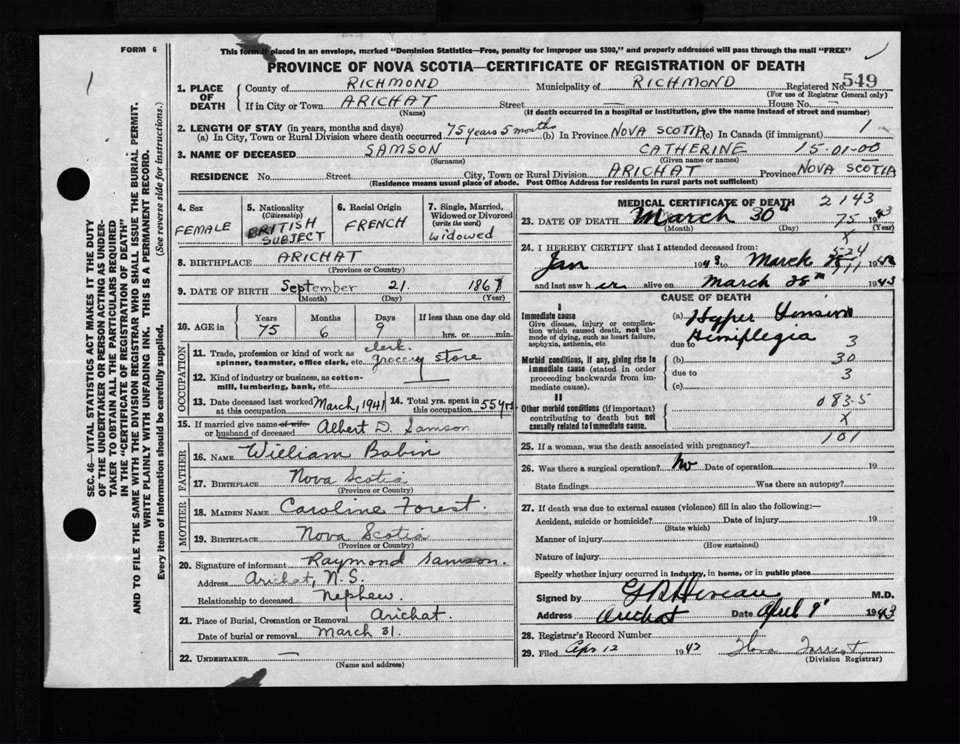 FORM 6
This form if placed in an envelope, marked "Dominion Statistics—Free, penalty for improper use $300," and properly addressed will pass through the mail "FREE"
PROVINCE OF NOVA SCOTIA—CERTIFICATE OF REGISTRATION OF DEATH
SEC. 46—VITAL STATISTICS ACT MAKES IT THE DUTY
OF THE UNDERTAKER OR PERSON ACTING AS UNDER-
TAKER TO OBTAIN ALL THE PARTICULARS REQUIRED
IN THE "CERTIFICATE OF REGISTRATION OF DEATH"
AND TO FILE THE SAME WITH THE DIVISION REGISTRAR WHO SHALL ISSUE THE BURIAL PERMIT.
WRITE PLAINLY WITH UNFADING INK. THIS IS A PERMANENT RECORD.
Every item of Information should be carefully supplied. (See reverse side for instructions.)
1. PLACE OF DEATH
County of RICHMOND Municipality of RICHMOND Registered No. 549
(For use of Registrar General only)
If in City or Town ARICHAT Street — House No. —
(Name) (If death occurred in a hospital or institution, give the name instead of street and number)
2. LENGTH OF STAY (in years, months and days)
(a) In City, Town or Rural Division where death occurred 75 years 5 months (b) In Province NOVA SCOTIA (c) In Canada (if immigrant) 1
3. NAME OF DECEASED SAMSON CATHERINE 15-01-00
(Surname) (Given name or names)
RESIDENCE No. Street City, Town or Rural Division ARICHAT Province NOVA SCOTIA
(Residence means usual place of abode. Post Office Address for residents in rural parts not sufficient)
4. Sex FEMALE
5. Nationality (Citizenship) BRITISH SUBJECT
6. Racial Origin FRENCH
7. Single, Married, Widowed or Divorced (write the word) Widowed
8. BIRTHPLACE ARICHAT
(Province or Country)
9. DATE OF BIRTH September 21. 1867
(Month) (Day) (Year)
10. AGE in Years Months Days If less than one day
75 6 9 hrs. or min.
OCCUPATION
11. Trade, profession or kind of work as spinner, teamster, office clerk, etc. clerk. Grocery Store
12. Kind of industry or business, as cotton-mill, lumbering, bank, etc.
13. Date deceased last worked at this occupation March, 1941
14. Total yrs. spent in this occupation 55 yrs.
15. If married give name of wife or husband of deceased Albert D. Samson
FATHER
16. NAME William Babin
17. BIRTHPLACE Nova Scotia
(Province or Country)
MOTHER
18. MAIDEN NAME Caroline Forest.
19. BIRTHPLACE Nova Scotia
(Province or Country)
20. Signature of informant Raymond Samson.
Address Arichat, N.S.
Relationship to deceased Nephew.
21. Place of Burial, Cremation or Removal Arichat.
Date of burial or removal March 31.
22. UNDERTAKER —
(Name and address)
MEDICAL CERTIFICATE OF DEATH 2143
23. DATE OF DEATH March 30th 75 1943
(Month) (Day) (Year)
X
24. I HEREBY CERTIFY that I attended deceased from:
Jan 1943 to March 1943
and last saw her alive on March 28th 1943
CAUSE OF DEATH
I
Immediate cause
Give disease, injury or complication which caused death, not the mode of dying, such as heart failure, asphyxia, asthenia, etc
(a) Hyper Tension
due to Hemiplegia 3
Morbid conditions, if any, giving rise to immediate cause (stated in order proceeding backwards from immediate cause).
(b) 30
due to 3
(c)
II
Other morbid conditions (if important) contributing to death but not causally related to immediate cause.
083.5
X
101
25. If a woman, was the death associated with pregnancy?
26. Was there a surgical operation? No Date of operation 19
State findings Was there an autopsy?
27. If death was due to external causes (violence) fill in also the following:—
Accident, suicide or homicide? Date of injury 19
(State which)
Manner of injury
(How sustained)
Nature of injury
Specify whether injury occurred in industry, in home, or in public place
Signed by M.D.
Address Arichat Date April 9" 1943
28. Registrar's Record Number
29. Filed Apr 12 1943
(Division Registrar)